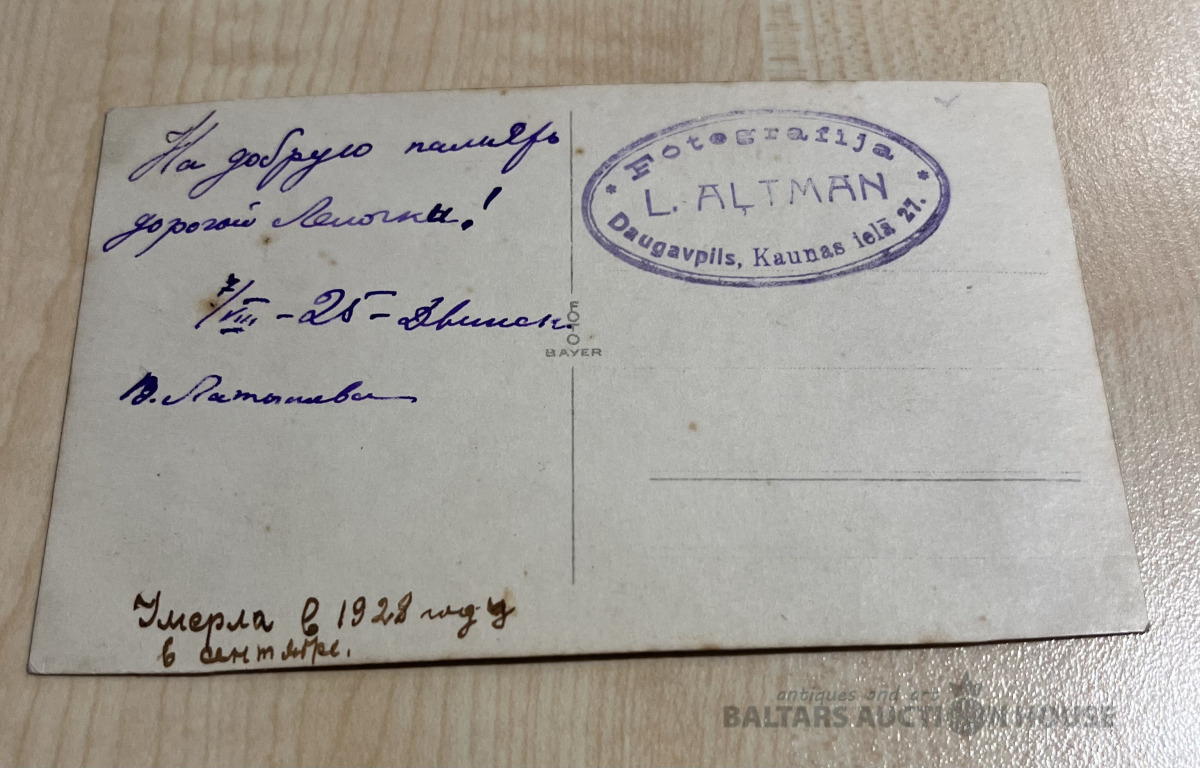 На добрую память
дорогой Лелочки!
7/VIII – 25 – Двинск.
В. Латышева
Умерла в 1928 году
в сентябре.
Fotografija
L. AĻTMAN
Daugavpils, Kaunas ielā 21.
BAYER
antiques and art
BALTARS AUCTION HOUSE